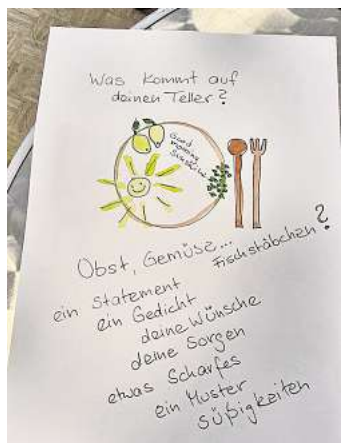 Was kommt auf
deinen Teller?
Good
morning
Sunshine
Obst, Gemüse...
Fischstäbchen?
ein Statement
ein Gedicht
deine Wünsche
deine Sorgen
etwas Scharfes
ein Muster
Süßigkeiten